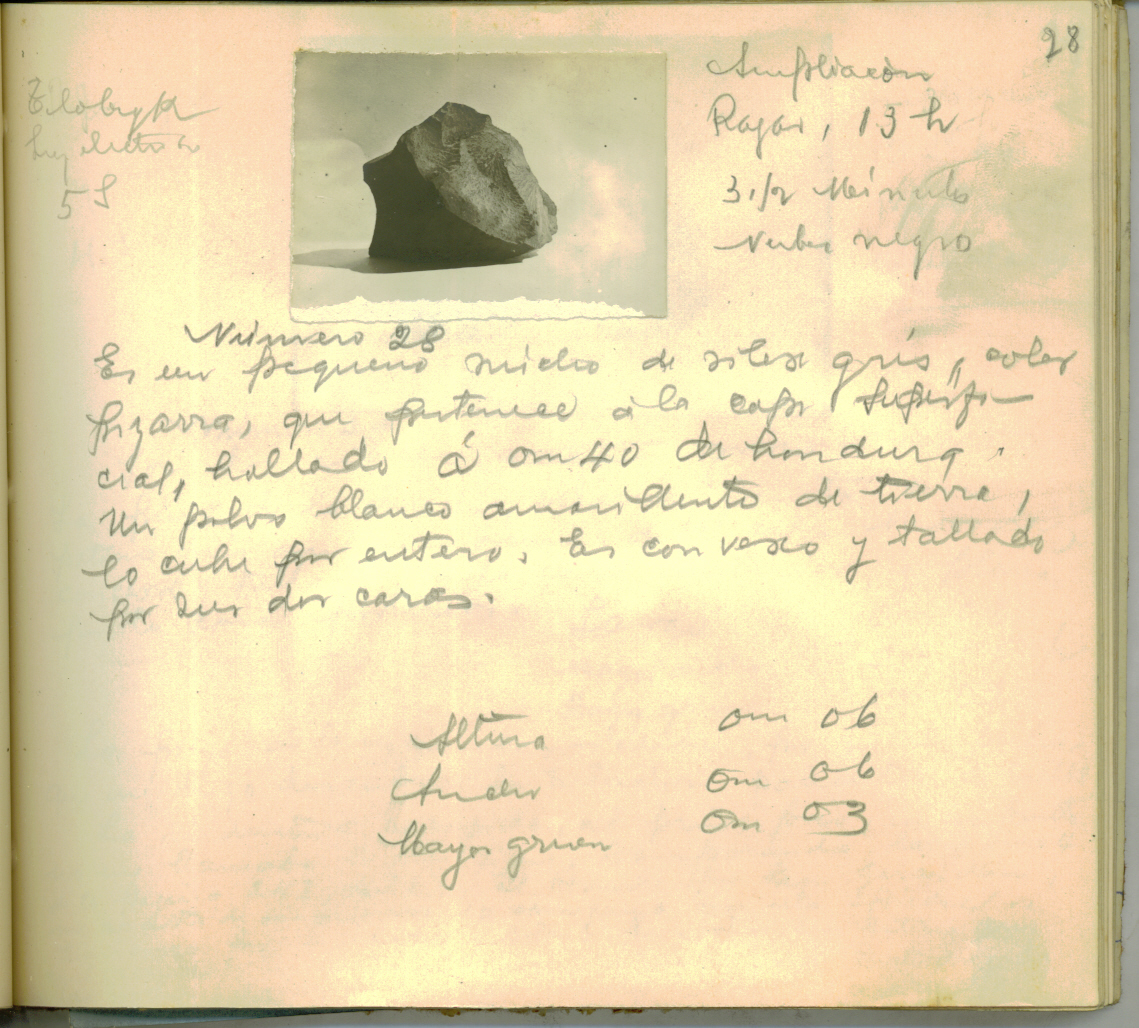 28
Ampliación
Rayos, 13 h
3 1/2 Minuto
negro
5 S
Número 28
Es un pequeño nucleo de silex gris, color
pizarra, que pertenece á la capa superfi-
cial, hallado á 0m40 de hondura.
Un polvo blanco amarillento de tierra,
lo cubre por entero. Es convexo y tallado
por sus dos caras.
Altura 0m 06
Ancho 0m 06
Mayor grueso 0m 03